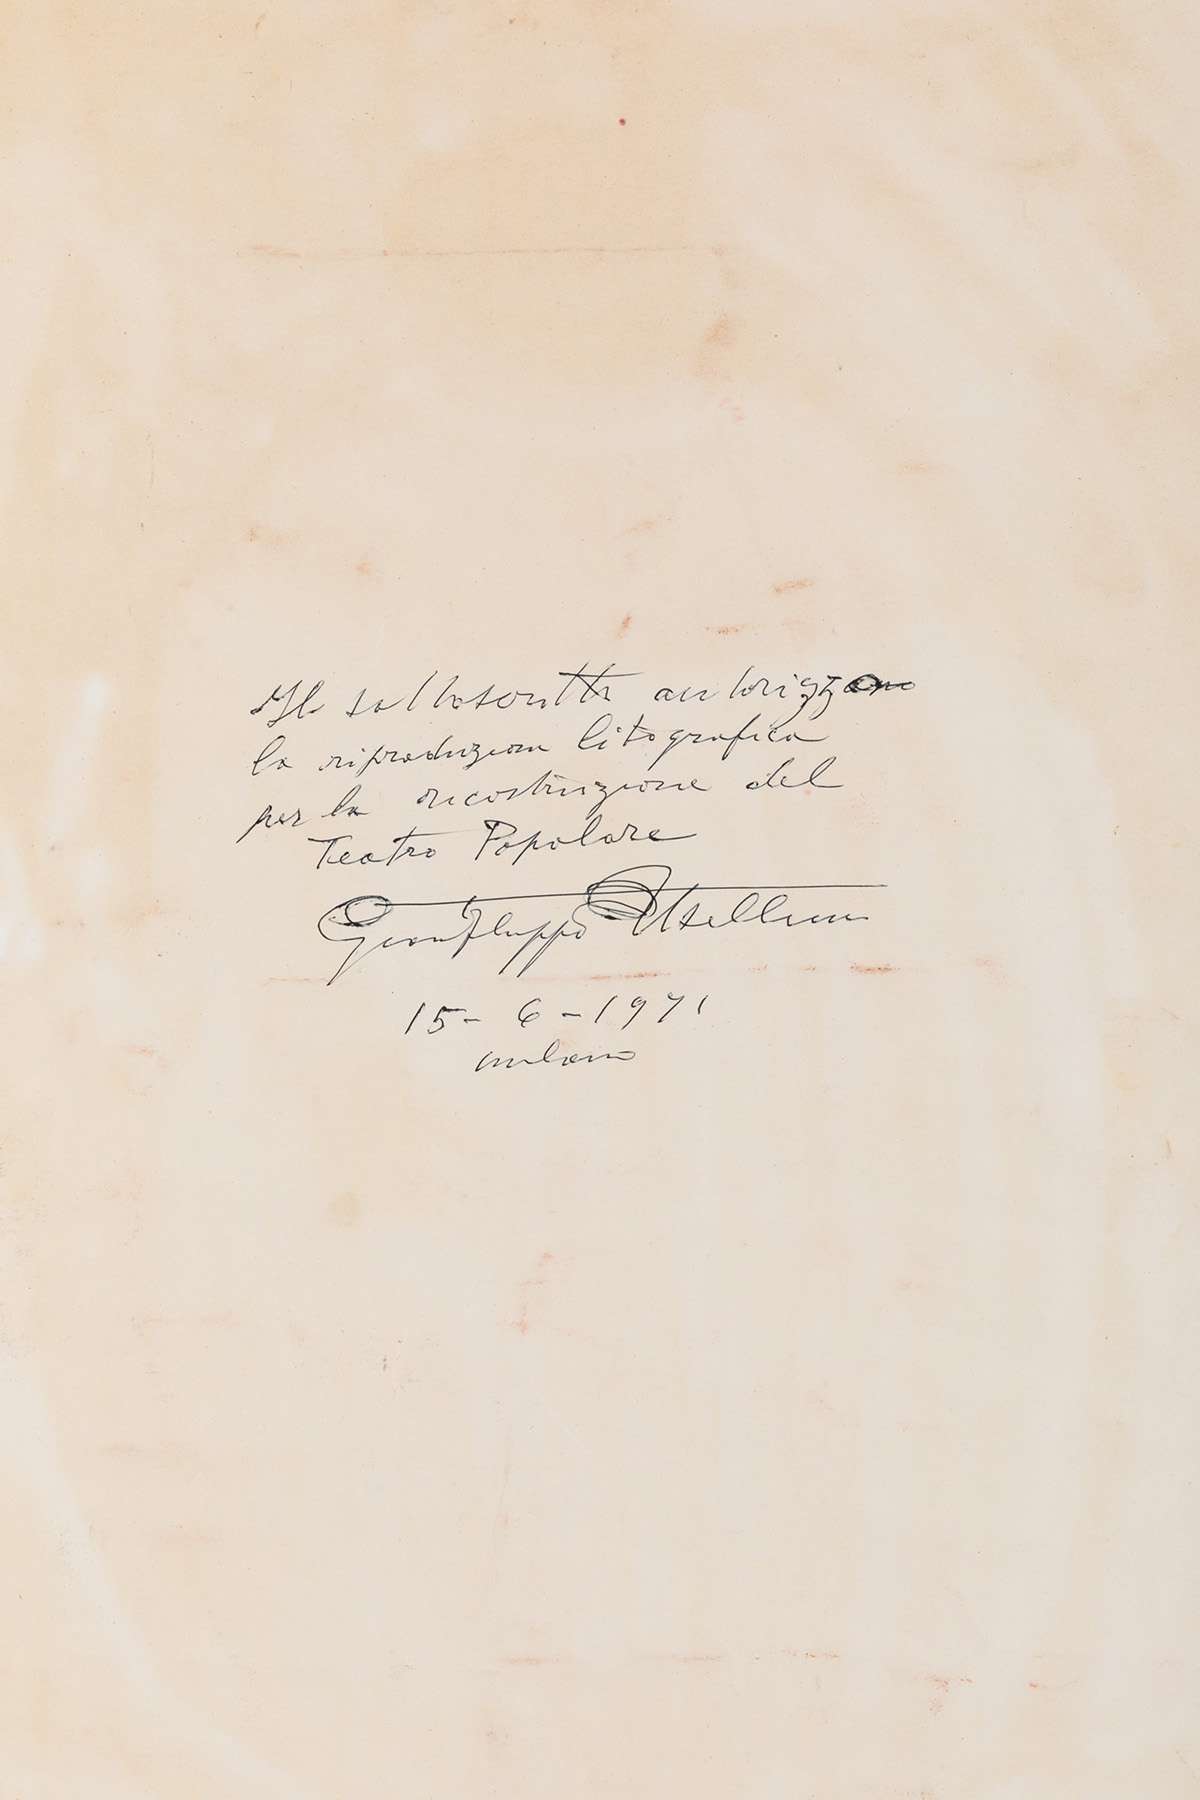 Il sottoscritto autorizza
la riproduzione litografica
per la ricostruzione del
Teatro Popolare
Gianfilippo Usellini
15-6-1971
milano